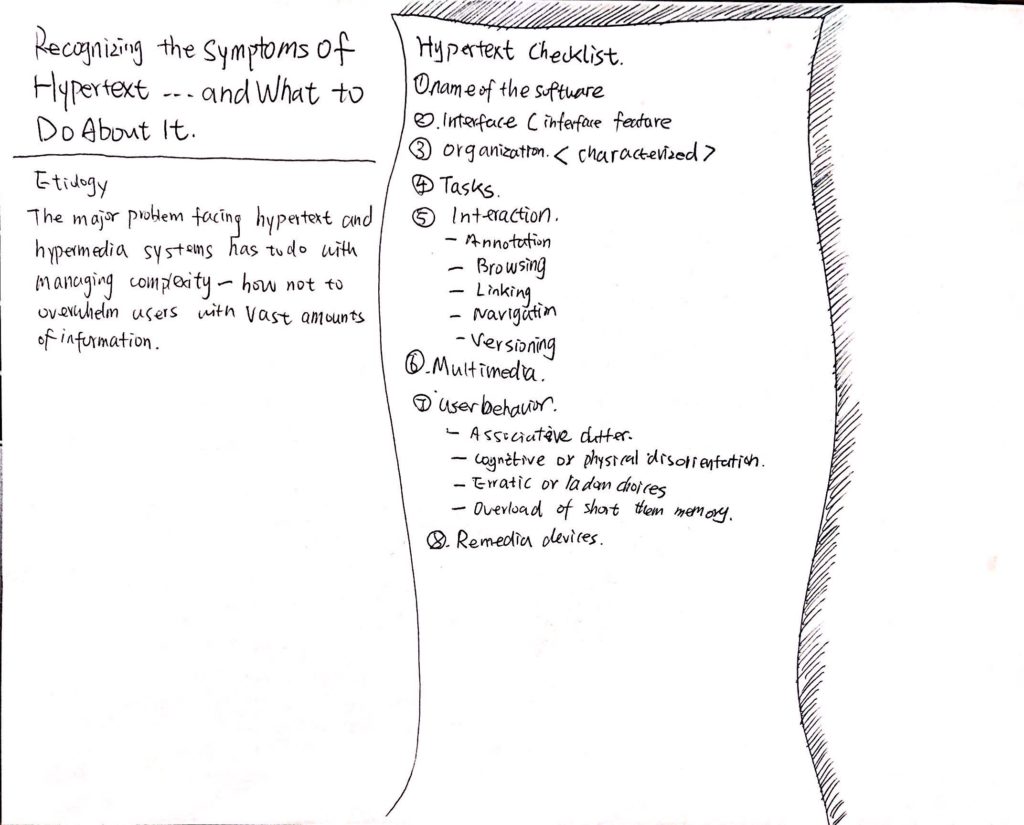 Recognizing the Symptoms Of
Hypertext --- and What to
Do About It.
Etidogy
The major problem facing hypertext and
hypermedia systems has to do with
managing complexity - how not to
overwhelm users with Vast amounts
of information.
Hypertext Checklist.
① name of the software
②. Interface ( interface feature
③ organization. < characterized >
④ Tasks.
⑤ Interaction.
- Annotation
- Browsing
- Linking
- Navigation
- Versioning
⑥. Multimedia.
⑦ user behavior.
- Associative clutter.
- cognitive or physical disorientation.
- Erratic or radom choices
- Overload of short them memory.
⑧. Remedia devices.